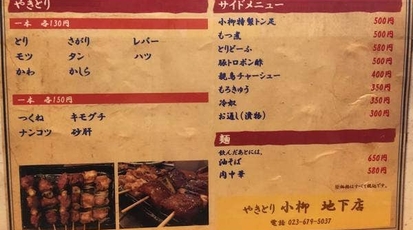 やきとり
一本 各130円
とり さがり レバー
モツ タン ハツ
かわ かしら
一本 各150円
つくね キモグチ
ナンコツ 砂肝
サイドメニュー
小柳特製トン足 500円
もつ煮 500円
とりどーふ 580円
豚トロポン酢 500円
親鳥チャーシュー 400円
もろきゅう 350円
冷奴 350円
お通し(漬物) 300円
麺
飲んだあとには、
油そば 650円
肉中華 580円
やきとり 小柳 地下店
電話 023-679-5037